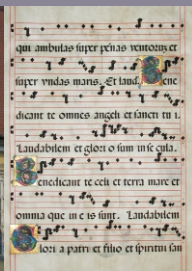 qui ambulas super penas ventorum et
super undas maris. Et laud. Bene
dicant te omnes angeli et sancti tu i.
Laudabilem et glori o sum in se cula.
Benedicant te celi et terra mare et
omnia que in e is sunt. Laudabilem
Glori a patri et filio et spiritui san